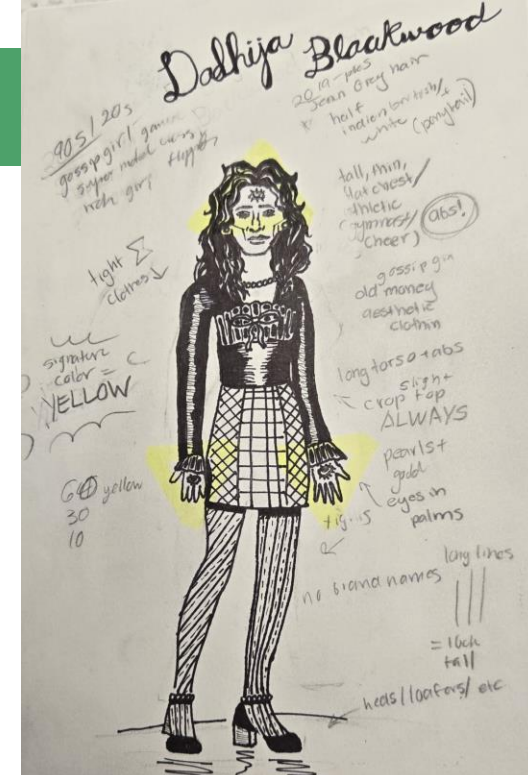 Dadhija Blackwood
90s/20s
gossip girl
super
rich girl
2019-
Jean Grey hair
half
indian british/
white (ponytail)
tall, thin,
flat chest/
athletic
(gymnast/
cheer) abs!
tight
clothes ↓
gossip girl
old money
aesthetic
clothin
signature
color =
YELLOW
long torso + abs
slight
crop top
ALWAYS
pearls +
gold
eyes in
palms
60 yellow
30
10
no brand names
long lines
= look
tall
heels/loafers/etc